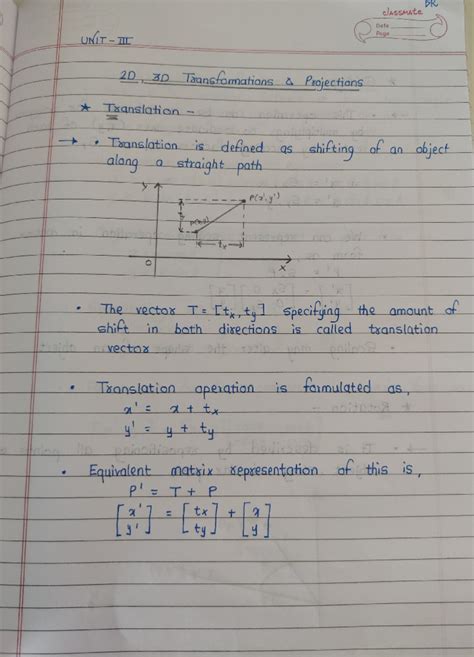 classmate
Date
Page
UNIT - III
2D, 3D Transformations & Projections
* Translation -
→ • Translation is defined as shifting of an object
along a straight path
y
P(x', y')
P(x,y)
tx
O
x
• The vector T = [tx, ty] specifying the amount of
shift in both directions is called translation
vector
• Translation operation is formulated as,
x' = x + tx
y' = y + ty
• Equivalent matrix representation of this is,
P' = T + P
[x' y'] = [tx ty] + [x y]